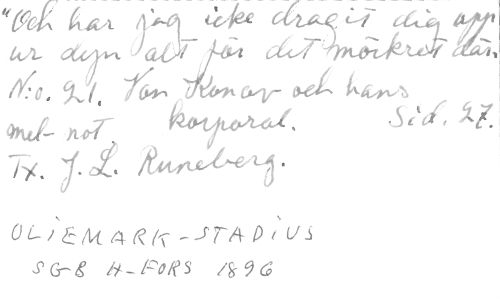 "Och har jag icke dragit dig opp
ur dyn alt för det mörkret där
N:o. 21. Von Konow och hans
mel-not. korporal. Sid. 27.
Tx. J. L. Runeberg.
OLIEMARK-STADIUS
SGB H-FORS 1896